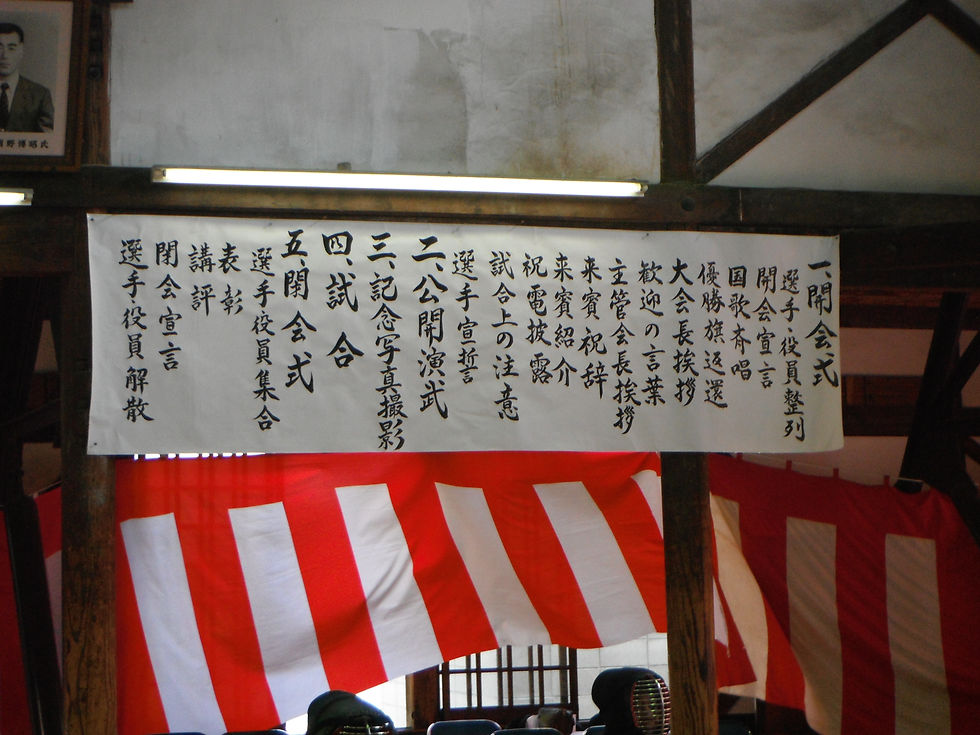 一、開会式
選手・役員整列
開会宣言
国歌斉唱
優勝旗返還
大会長挨拶
歓迎の言葉
主管会長挨拶
来賓祝辞
来賓紹介
祝電披露
試合上の注意
選手宣誓
二、公開演武
三、記念写真撮影
四、試合
五、閉会式
選手・役員集合
表彰
講評
閉会宣言
選手・役員解散
野博昭氏